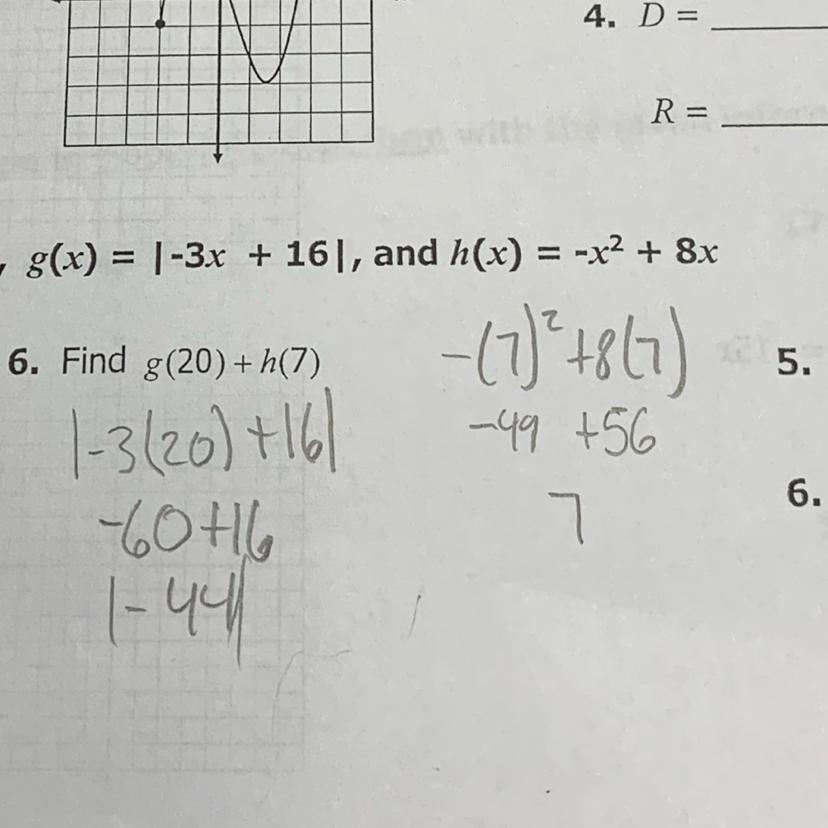 4. D = ______
R = ______
, g(x) = |-3x + 16|, and h(x) = -x² + 8x
6. Find g(20) + h(7)
-(7)² +8(7)
5.
|-3(20) +16|
-49 +56
-60+16
7
6.
|-44|